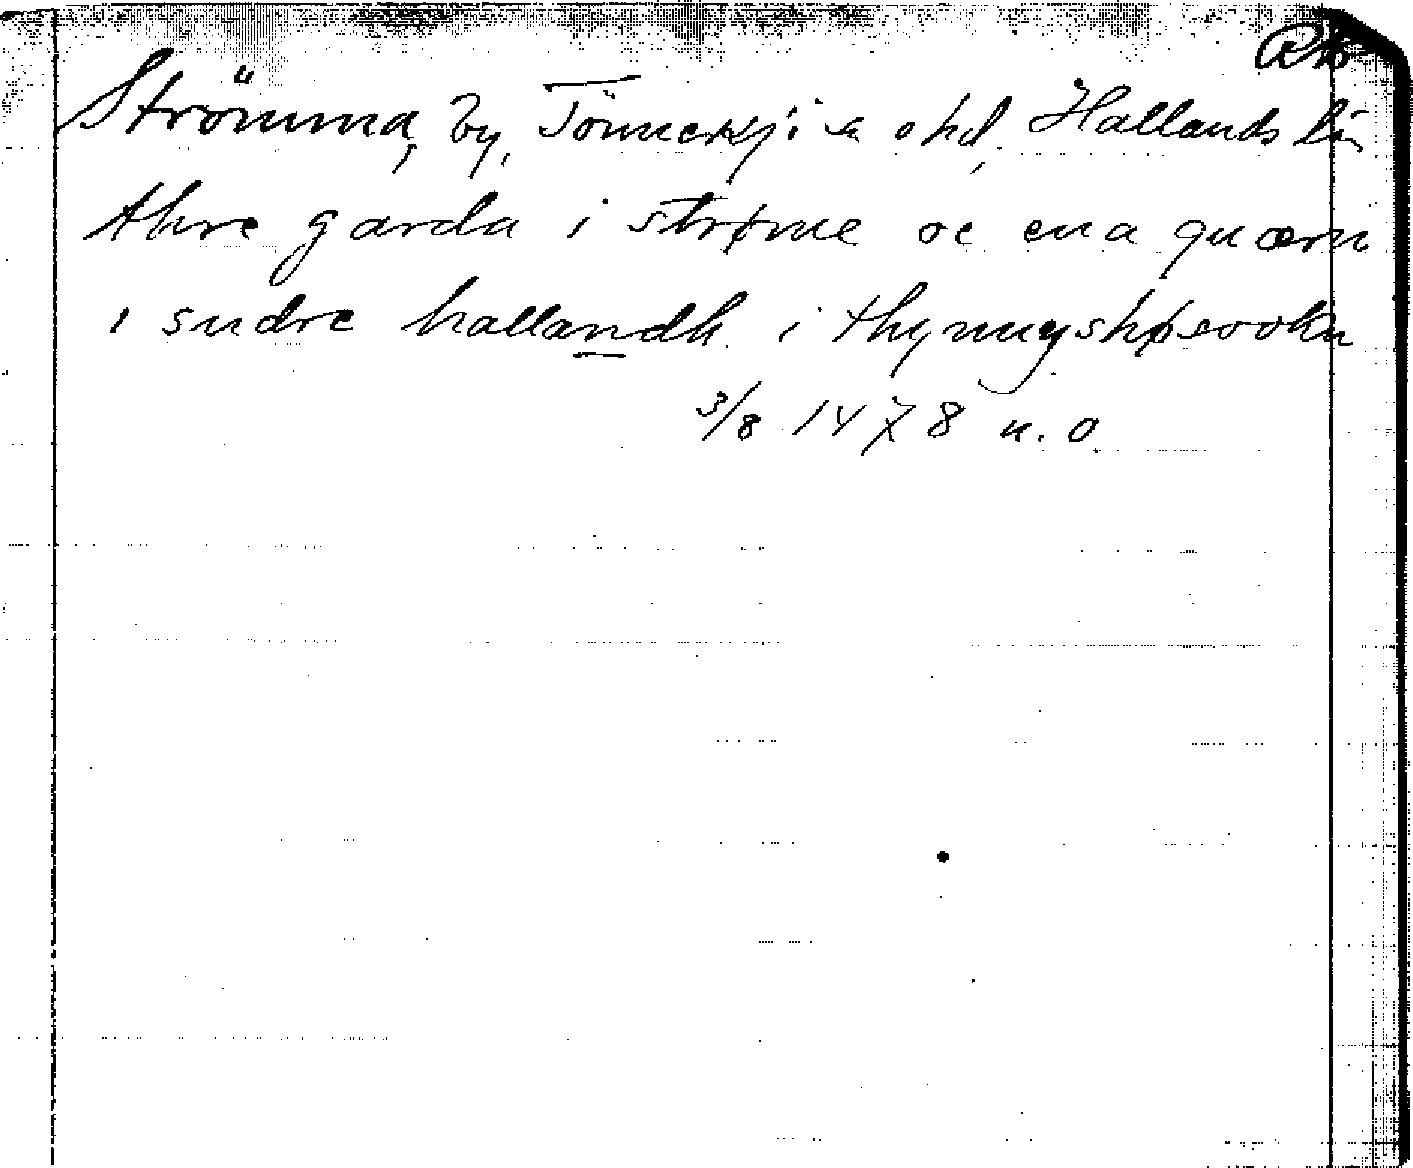 Strömma, by, Tönnersjö sn o hd, Hallands län
thre garda i strøme oc ena quærn
i sudre hallandh i thynnyshøsookn
3/8 1478 u.o.